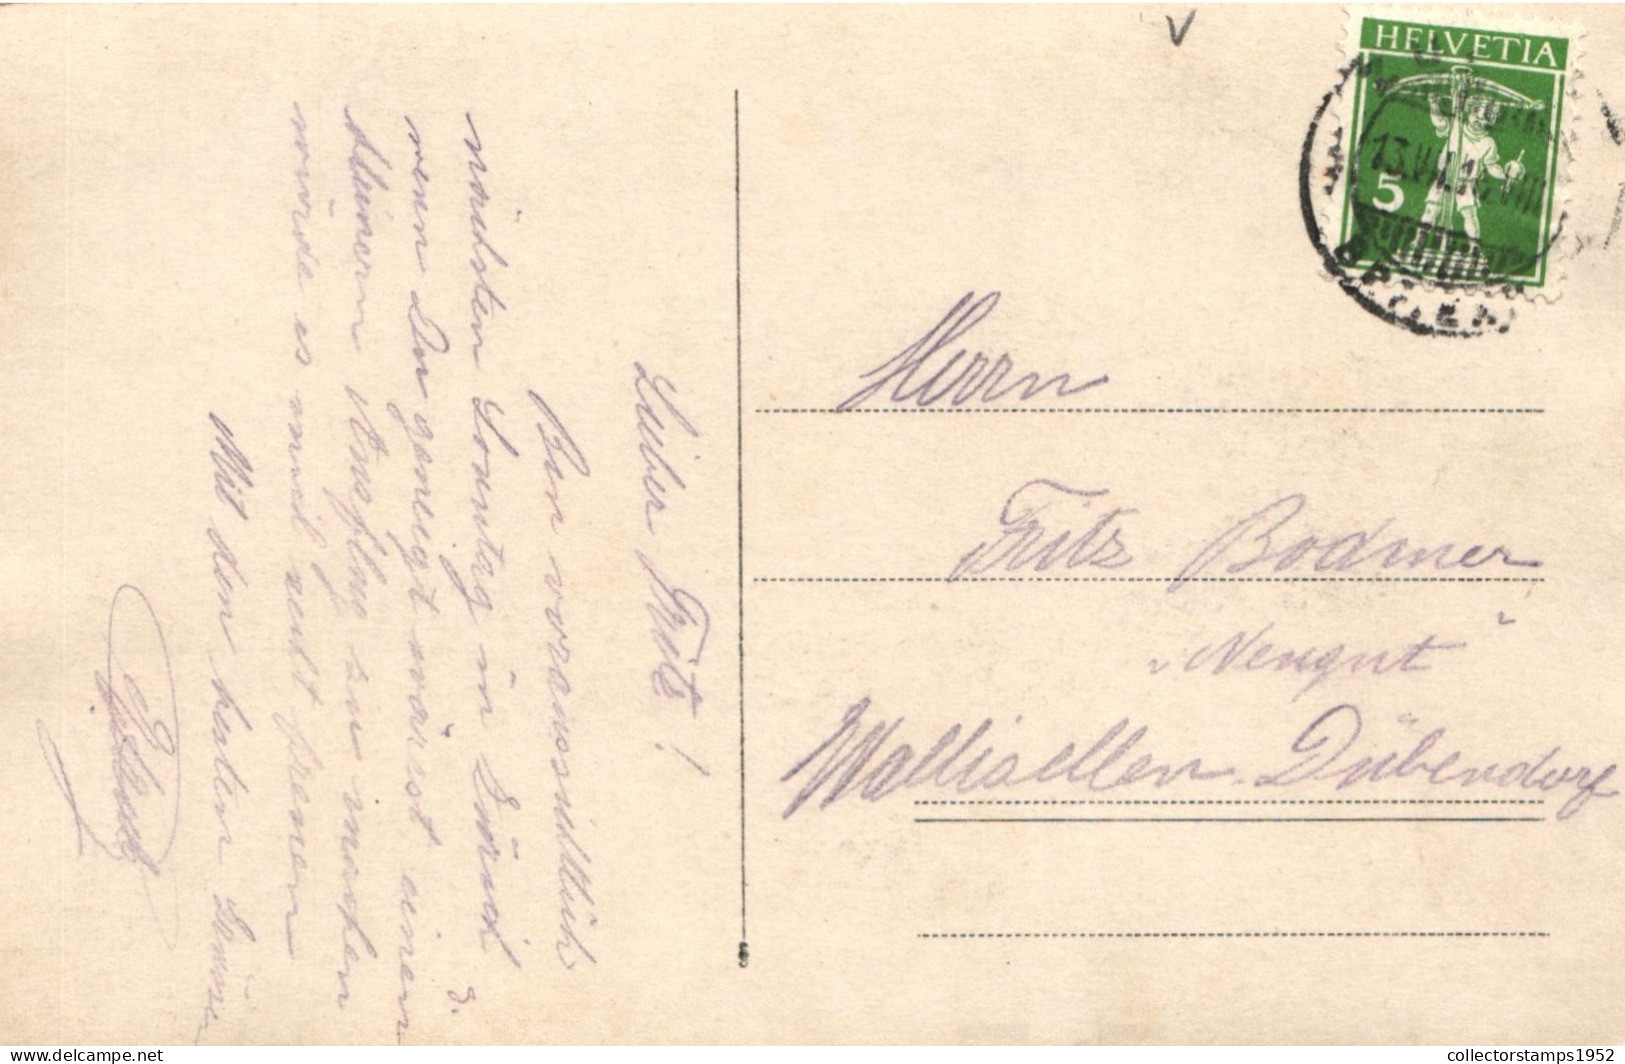 Lieber Fritz!
Bin voraussichtlich
nächsten Sonntag in Zürich &
wenn Du geneigt wärest einen
kleinern Ausflug zu machen
würde es mich recht freuen
Mit den besten Grüssen
HELVETIA
5
13.VII.16.VIII
Herrn
Fritz Bodmer
"Neugut"
Wallisellen-Dübendorf
collectorstamps1952